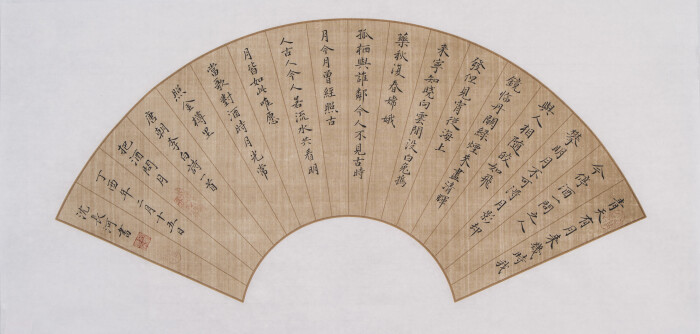 青天有月来幾時我
今停酒一問之人
攀明月不可得月影却
與人相隨皎如飛
鏡临丹闕綠煙来盡清暉
發但見宵從海上
来寧知曉向雲間没白兎搗
藥秋復春嫦娥
孤栖與誰鄰今人不見古時
月今月曾經照古
人古人今人若流水共看明
月皆如此唯愿
當歌對酒時月光常
照金樽里
唐朝李白詩一首
把酒問月
丁酉年二月十五日
沈長河書